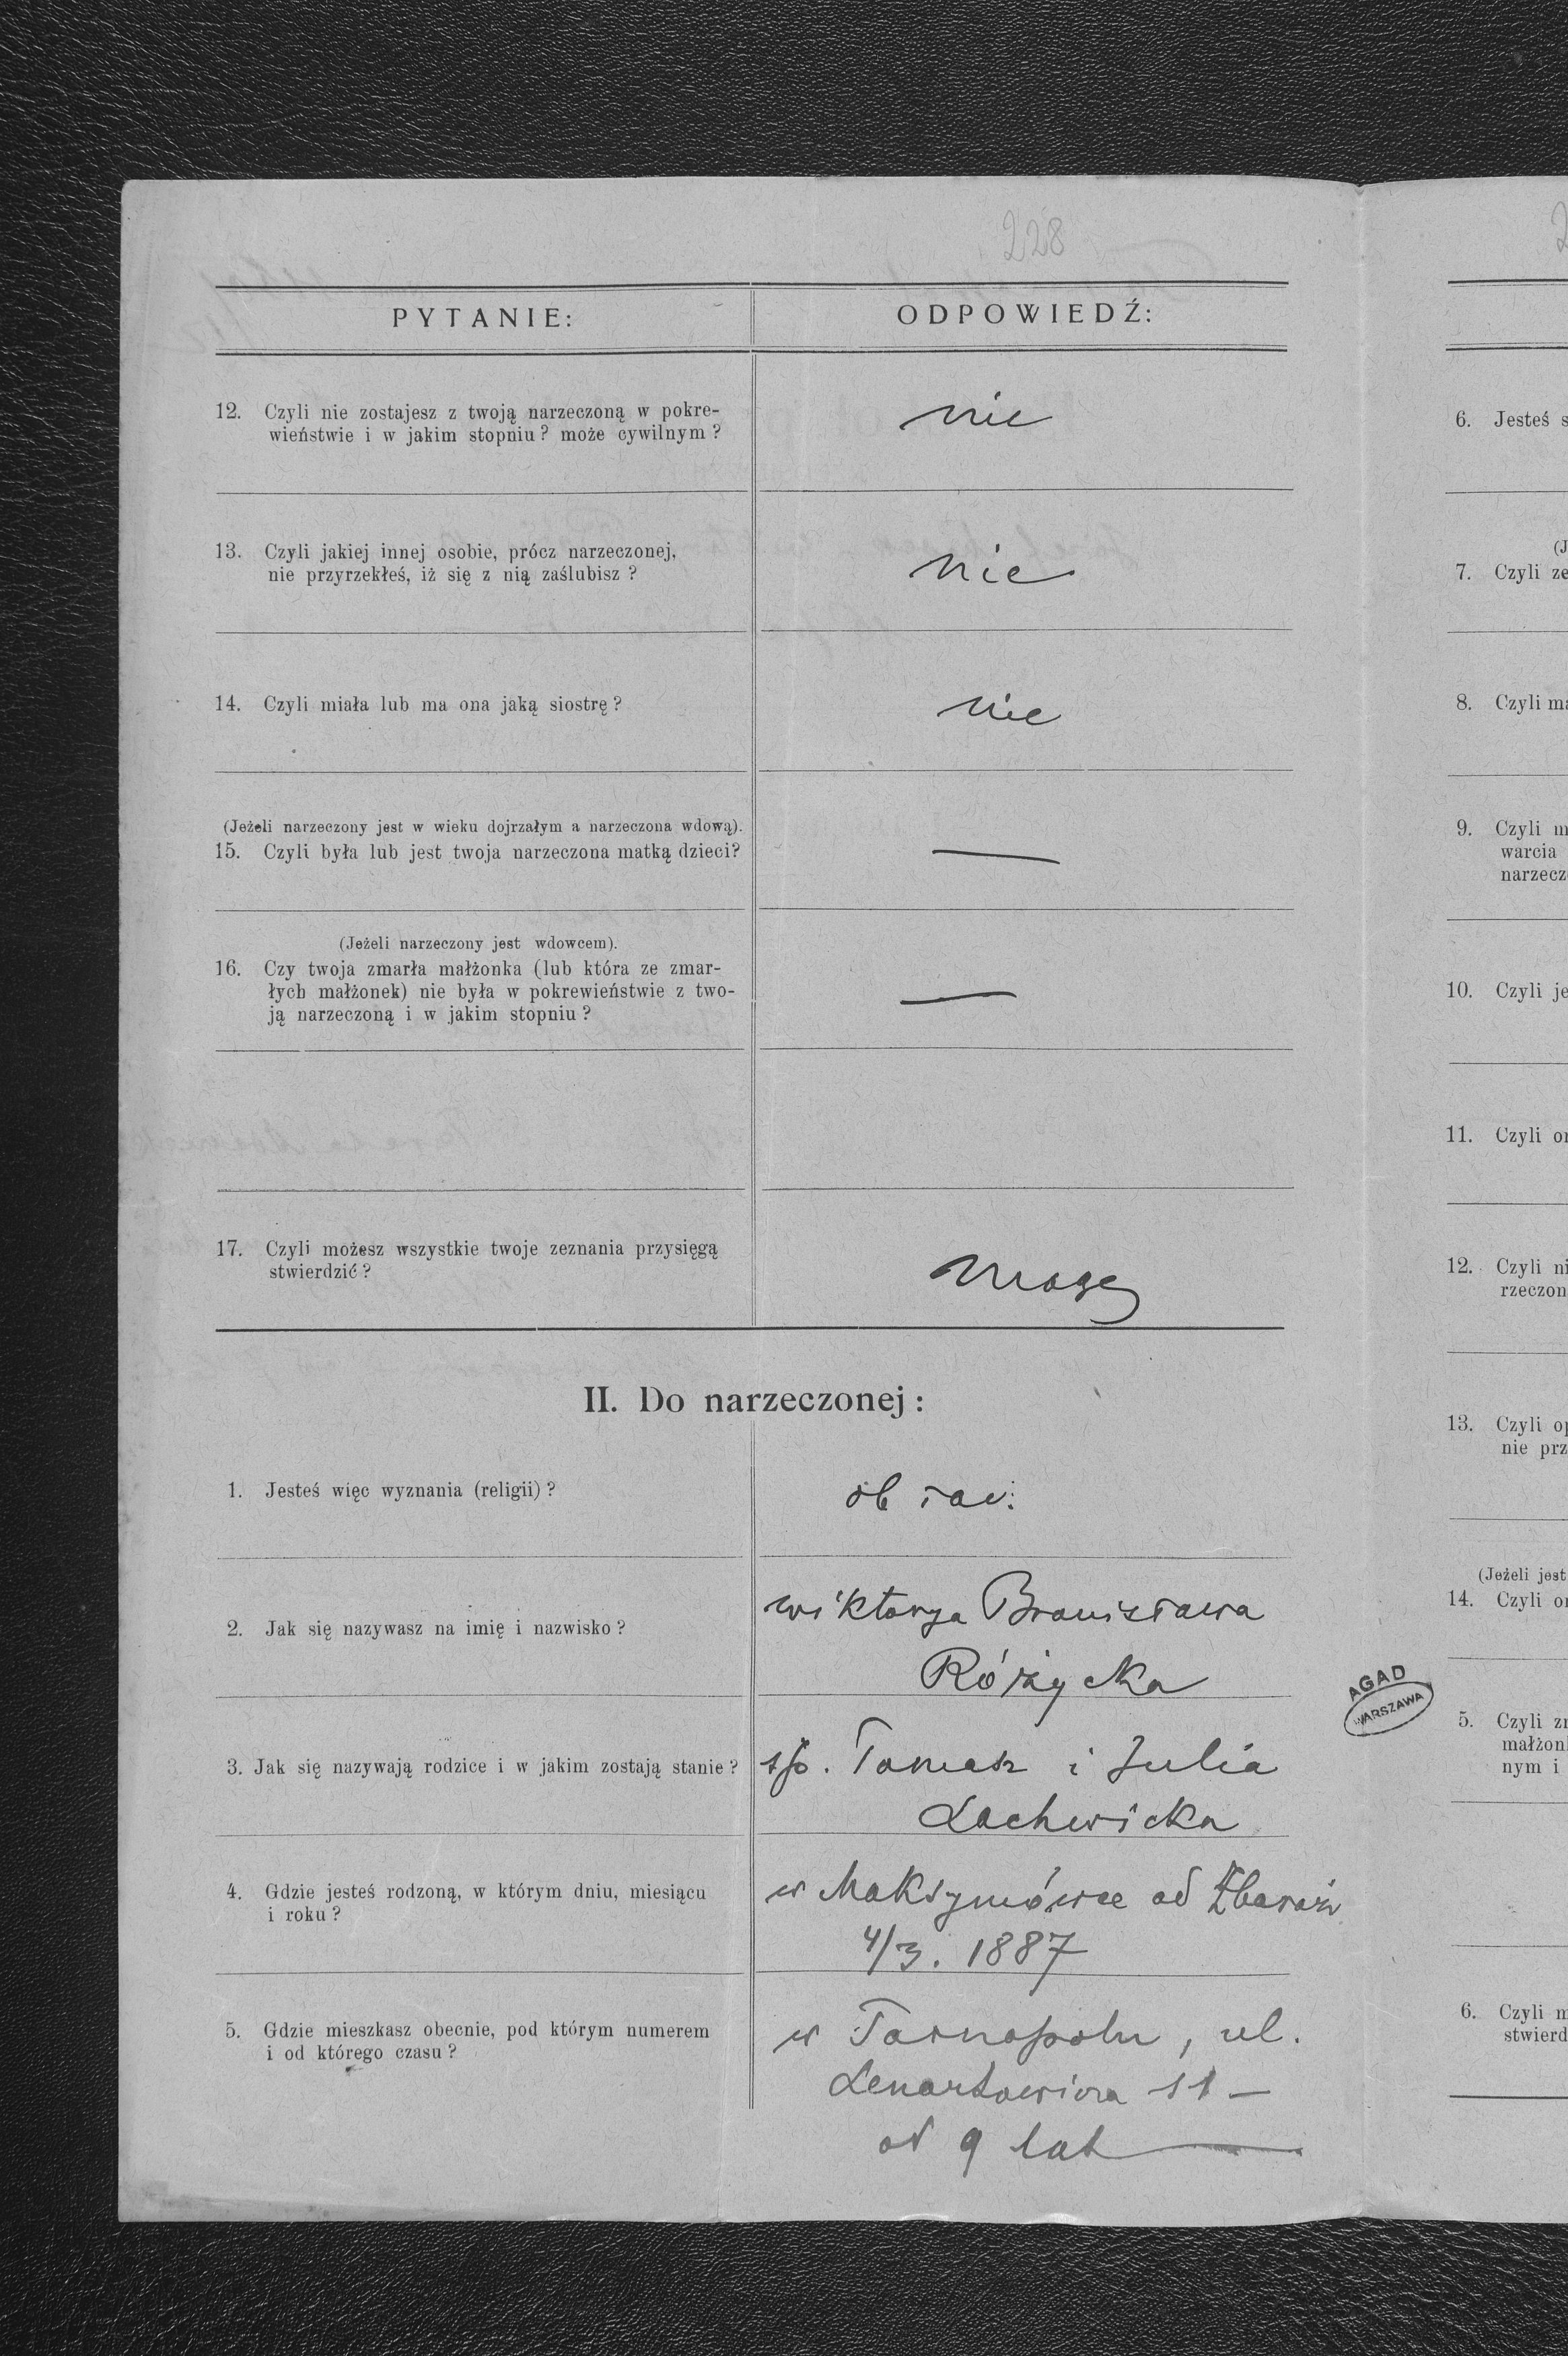 228
PYTANIE:
ODPOWIEDŹ:
12. Czyli nie zostajesz z twoją narzeczoną w pokre-
wieństwie i w jakim stopniu? może cywilnym?
nie
13. Czyli jakiej innej osobie, prócz narzeczonej,
nie przyrzekłeś, iż się z nią zaślubisz?
nie
14. Czyli miała lub ma ona jaką siostrę?
nie
(Jeżeli narzeczony jest w wieku dojrzałym a narzeczona wdową).
15. Czyli była lub jest twoja narzeczona matką dzieci?
—
(Jeżeli narzeczony jest wdowcem).
16. Czy twoja zmarła małżonka (lub która ze zmar-
łych małżonek) nie była w pokrewieństwie z two-
ją narzeczoną i w jakim stopniu?
—
17. Czyli możesz wszystkie twoje zeznania przysięgą
stwierdzić?
mogę
II. Do narzeczonej:
1. Jesteś więc wyznania (religii)?
ob łac:
2. Jak się nazywasz na imię i nazwisko?
Wiktorya Bronisława
Różycka
3. Jak się nazywają rodzice i w jakim zostają stanie?
śp. Tomasz i Julia
Lachwicka
4. Gdzie jesteś rodzoną, w którym dniu, miesiącu
i roku?
w Maksymówce ad Zbaraż
4/3. 1887
5. Gdzie mieszkasz obecnie, pod którym numerem
i od którego czasu?
w Tarnopolu, ul.
Lenartowicza 11 —
od 9 lat —
AGAD
WARSZAWA
6. Jesteś s
(J
7. Czyli ze
8. Czyli ma
9. Czyli m
warcia
narzecz
10. Czyli je
11. Czyli on
12. Czyli ni
rzeczon
13. Czyli op
nie prz
(Jeżeli jest
14. Czyli on
5. Czyli zn
małżonk
nym i
6. Czyli m
stwierd